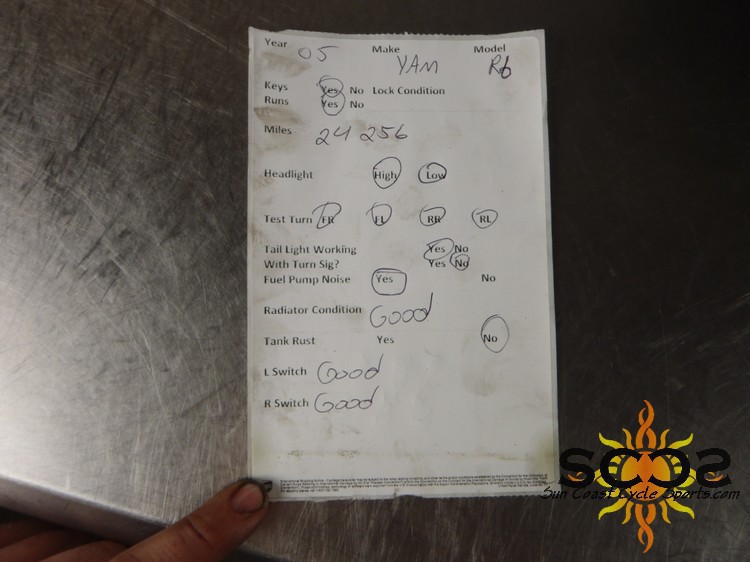 Year 05 Make YAM Model R6
Keys Yes No Lock Condition
Runs Yes No
Miles 24 256
Headlight High Low
Test Turn FR FL RR RL
Tail Light Working Yes No
With Turn Sig? Yes No
Fuel Pump Noise Yes No
Radiator Condition Good
Tank Rust Yes No
L Switch Good
R Switch Good
SCCS
Sun Coast Cycle Sports.com